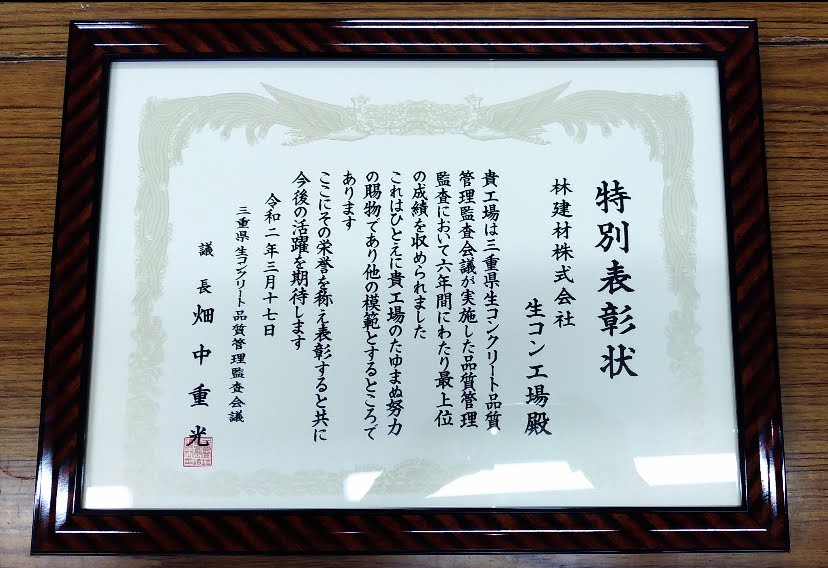 特別表彰状
林建材株式会社
生コン工場殿
貴工場は三重県生コンクリート品質
管理監査会議が実施した品質管理
監査において六年間にわたり最上位
の成績を収められました
これはひとえに貴工場のたゆまぬ努力
の賜物であり他の模範とするところで
あります
ここにその栄誉を称え表彰すると共に
今後の活躍を期待します
令和二年三月十七日
三重県生コンクリート品質管理監査会議
議長 畑中重光